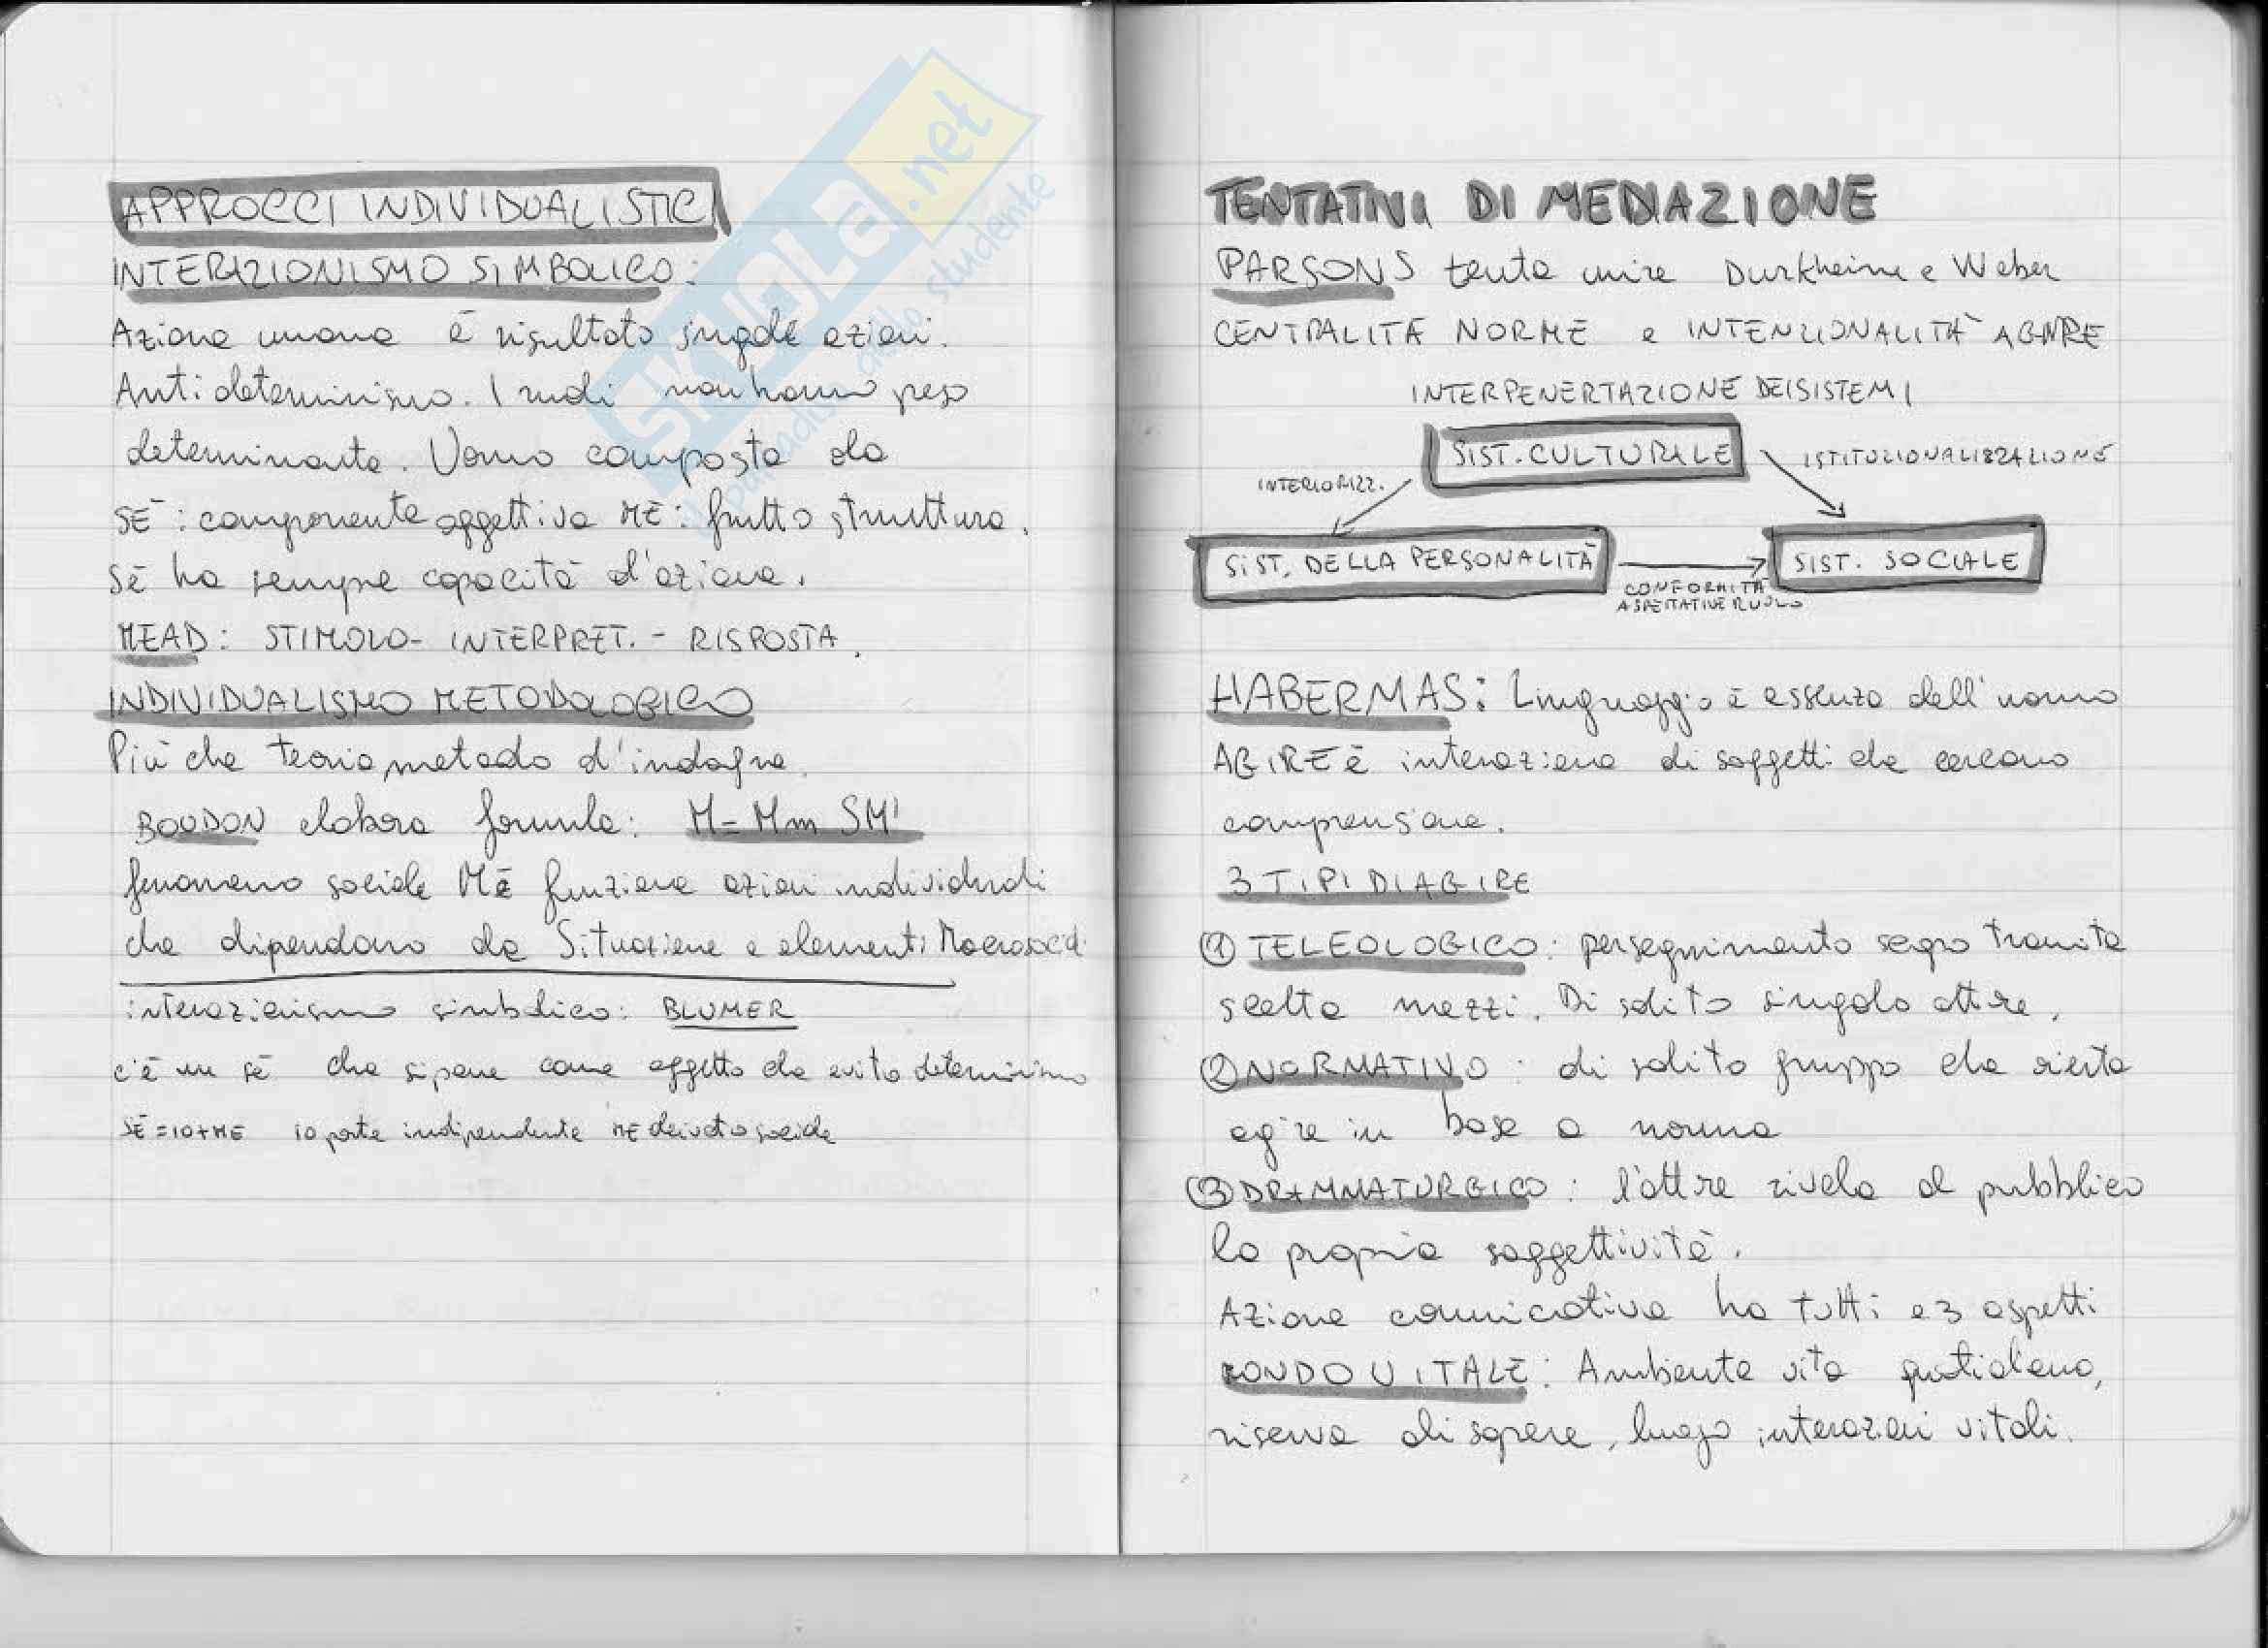 APPROCCI INDIVIDUALISTICI
INTERAZIONISMO SIMBOLICO:
Azione umana è risultato singole azioni.
Antideterminismo. I ruoli non hanno peso
determinante. Uomo composto da
SÉ: componente oggettiva ME: frutto struttura.
Sé ha sempre capacità d'azione.
MEAD: STIMOLO- INTERPRET. - RISPOSTA.
INDIVIDUALISMO METODOLOGICO
Più che teoria metodo d'indagine.
BOUDON elabora formula: M=Mm SM'
fenomeno sociale M è funzione azioni individuali
che dipendono da Situazione e elementi Macrosociali
interazionismo simbolico: BLUMER
c'è un sé che si pone come oggetto che evita determinismo
SÉ=IO+ME IO parte indipendente ME derivato sociale
TENTATIVI DI MEDIAZIONE
PARSONS tenta unire Durkheim e Weber
CENTRALITÀ NORME e INTENZIONALITÀ AGIRE
INTERPENERTAZIONE DEI SISTEMI
SIST. CULTURALE
ISTITUZIONALIZZAZIONE
INTERIORIZZ.
SIST. DELLA PERSONALITÀ
SIST. SOCIALE
CONFORMITÀ
ASPETTATIVE RUOLO
HABERMAS: Linguaggio è essenza dell'uomo
AGIRE è interazione di soggetti che cercano
comprensione.
3 TIPI DI AGIRE
① TELEOLOGICO: perseguimento scopo tramite
scelta mezzi. Di solito singolo attore.
② NORMATIVO: di solito gruppo che orienta
agire in base a norma
③ DRAMMATURGICO: l'attore rivela al pubblico
la propria soggettività.
Azione comunicativa ha tutti e 3 aspetti
MONDO VITALE: Ambiente vita quotidiana,
riserva di sapere, luogo interazioni vitali.
SKUOLA.net
Il paradiso dello studente